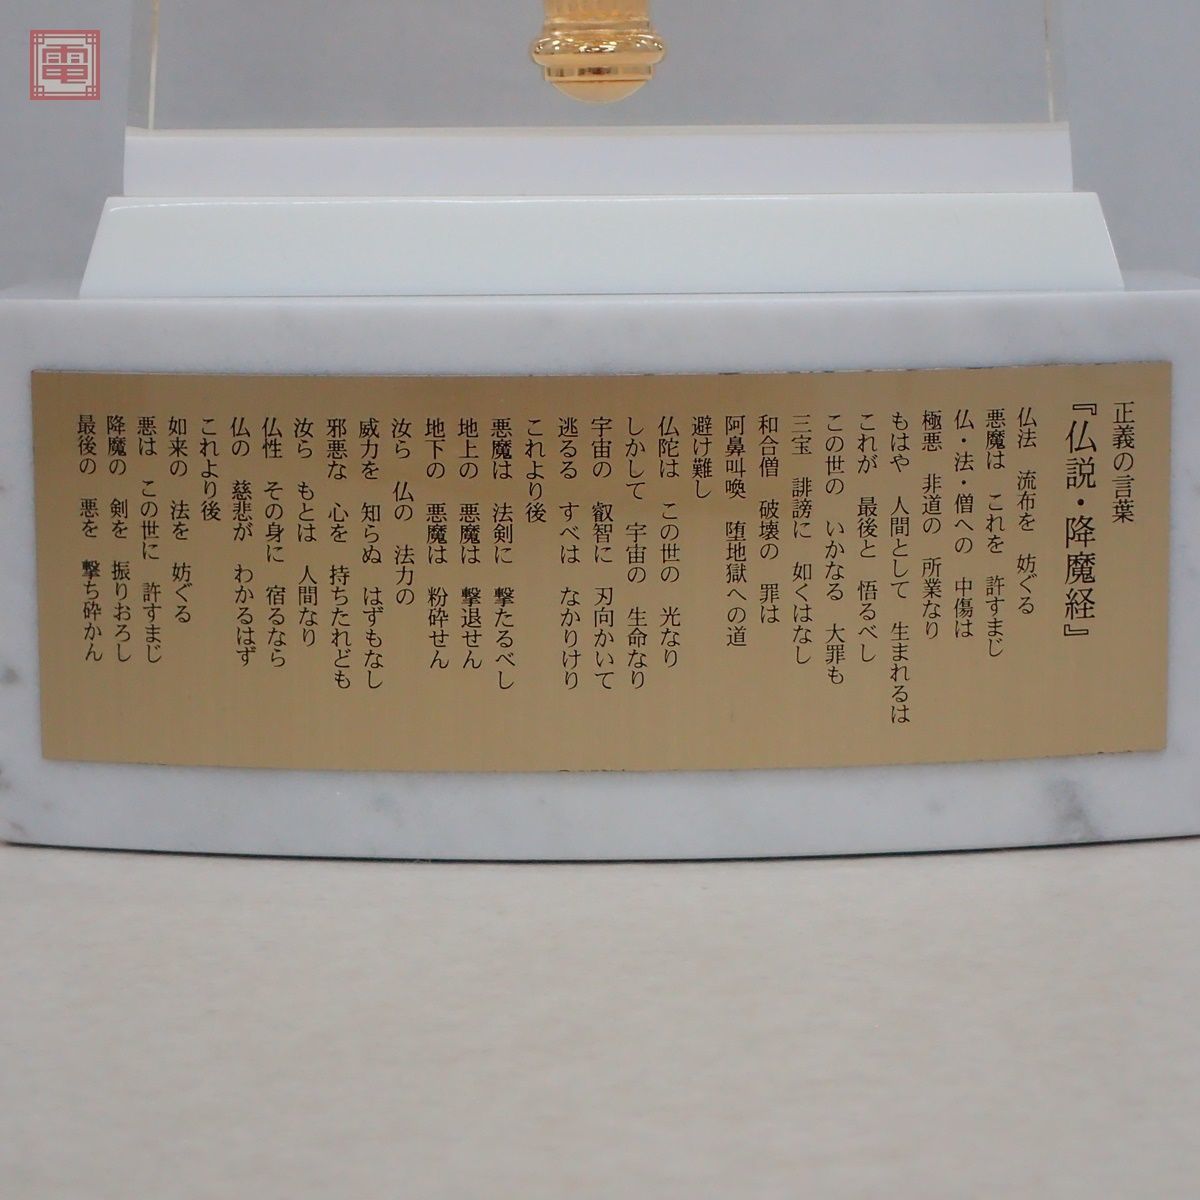 電
正義の言葉
『仏説・降魔経』
仏法 流布を 妨ぐる
悪魔は これを 許すまじ
仏・法・僧への 中傷は
極悪 非道の 所業なり
もはや 人間として 生まれるは
これが 最後と 悟るべし
この世の いかなる 大罪も
三宝 誹謗に 如くはなし
和合僧 破壊の 罪は
阿鼻叫喚 堕地獄への道
避け難し
仏陀は この世の 光なり
しかして 宇宙の 生命なり
宇宙の 叡智に 刃向かいて
逃るる すべは なかりけり
これより後
悪魔は 法剣に 撃たるべし
地上の 悪魔は 撃退せん
地下の 悪魔は 粉砕せん
汝ら 仏の 法力の
威力を 知らぬ はずもなし
邪悪な 心を 持ちたれども
汝ら もとは 人間なり
仏性 その身に 宿るなら
仏の 慈悲が わかるはず
これより後
如来の 法を 妨ぐる
悪は この世に 許すまじ
降魔の 剣を 振りおろし
最後の 悪を 撃ち砕かん